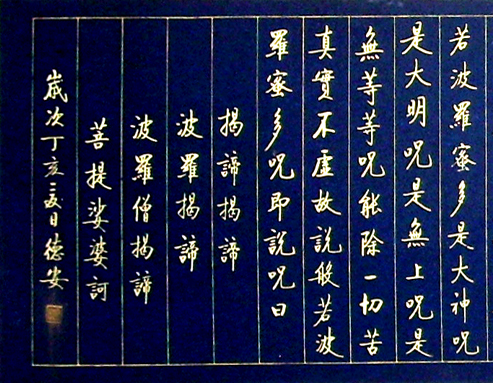 若波羅蜜多是大神咒
是大明咒是無上咒是
無等等咒能除一切苦
真實不虛故說般若波
羅蜜多咒即說咒曰
揭諦揭諦
波羅揭諦
波羅僧揭諦
菩提娑婆訶
歲次丁亥夏日德安